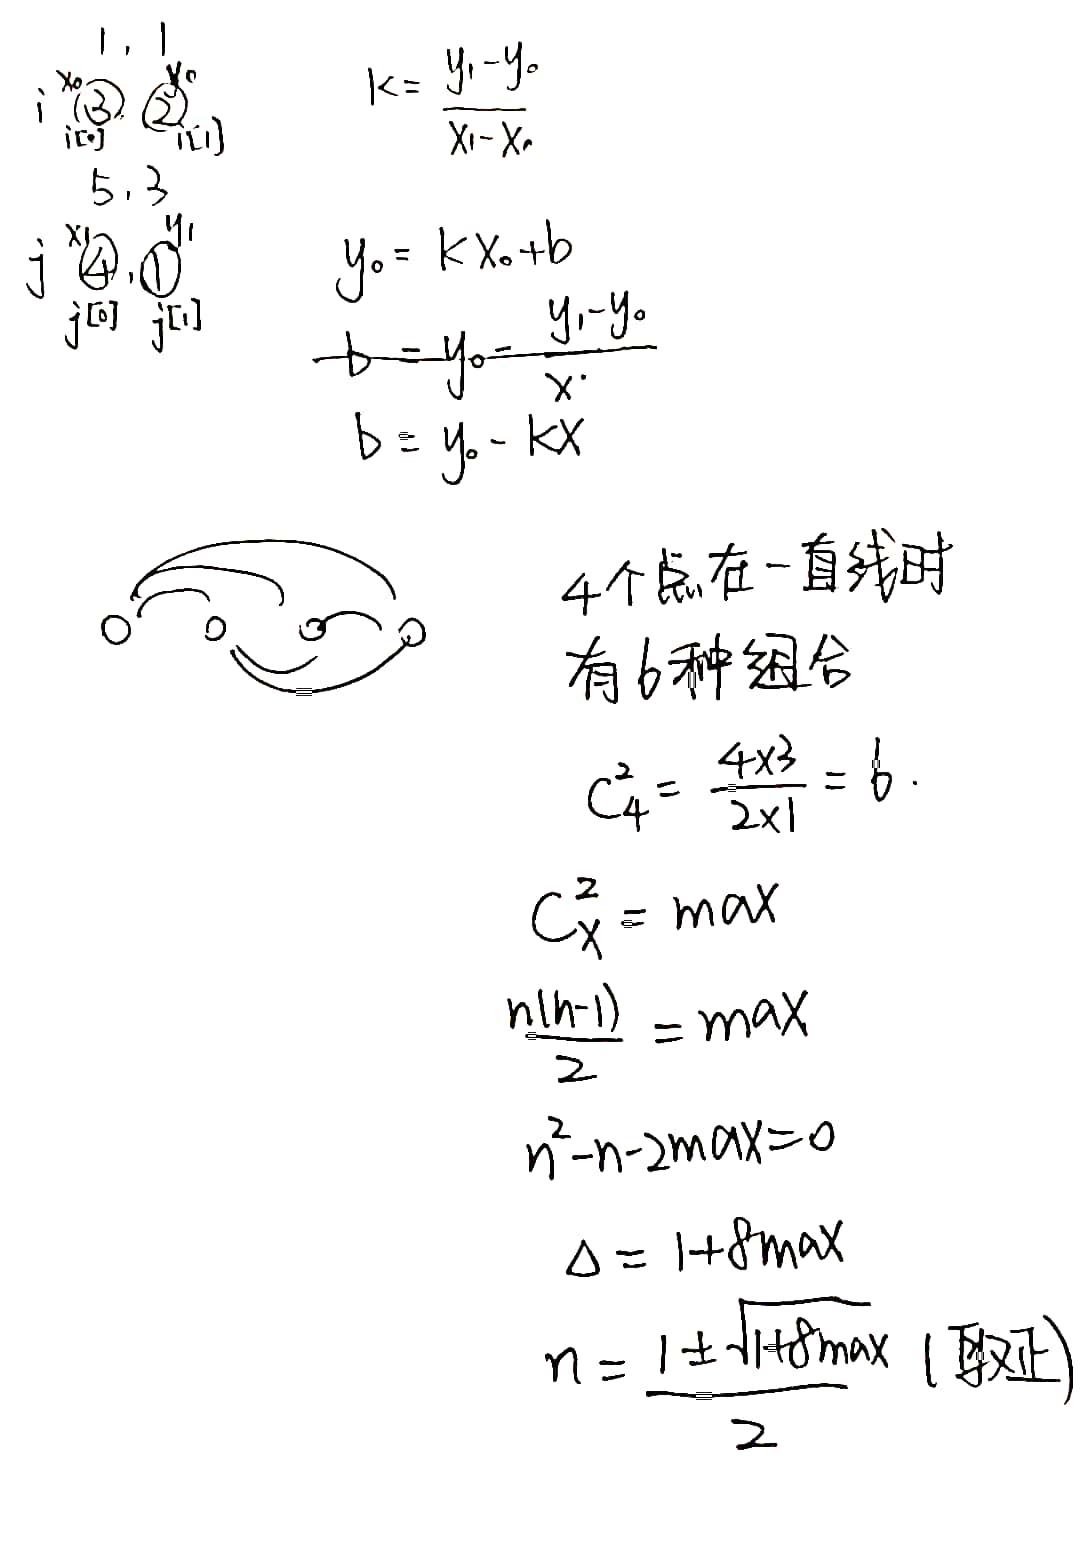 1, 1
i x₀ ③, y₀ ②
i[0] i[1]
5, 3
j x₁ ④, y₁ ①
j[0] j[1]
k = (y₁-y₀)/(x₁-x₀)
y₀ = kx₀+b
b = y₀ - (y₁-y₀)/x
b = y₀ - kx
4个点在一直线时
有6种组合
C₄² = (4×3)/(2×1) = 6.
Cₓ² = max
n(n-1)/2 = max
n²-n-2max=0
Δ = 1+8max
n = (1±√(1+8max))/2 (取正)